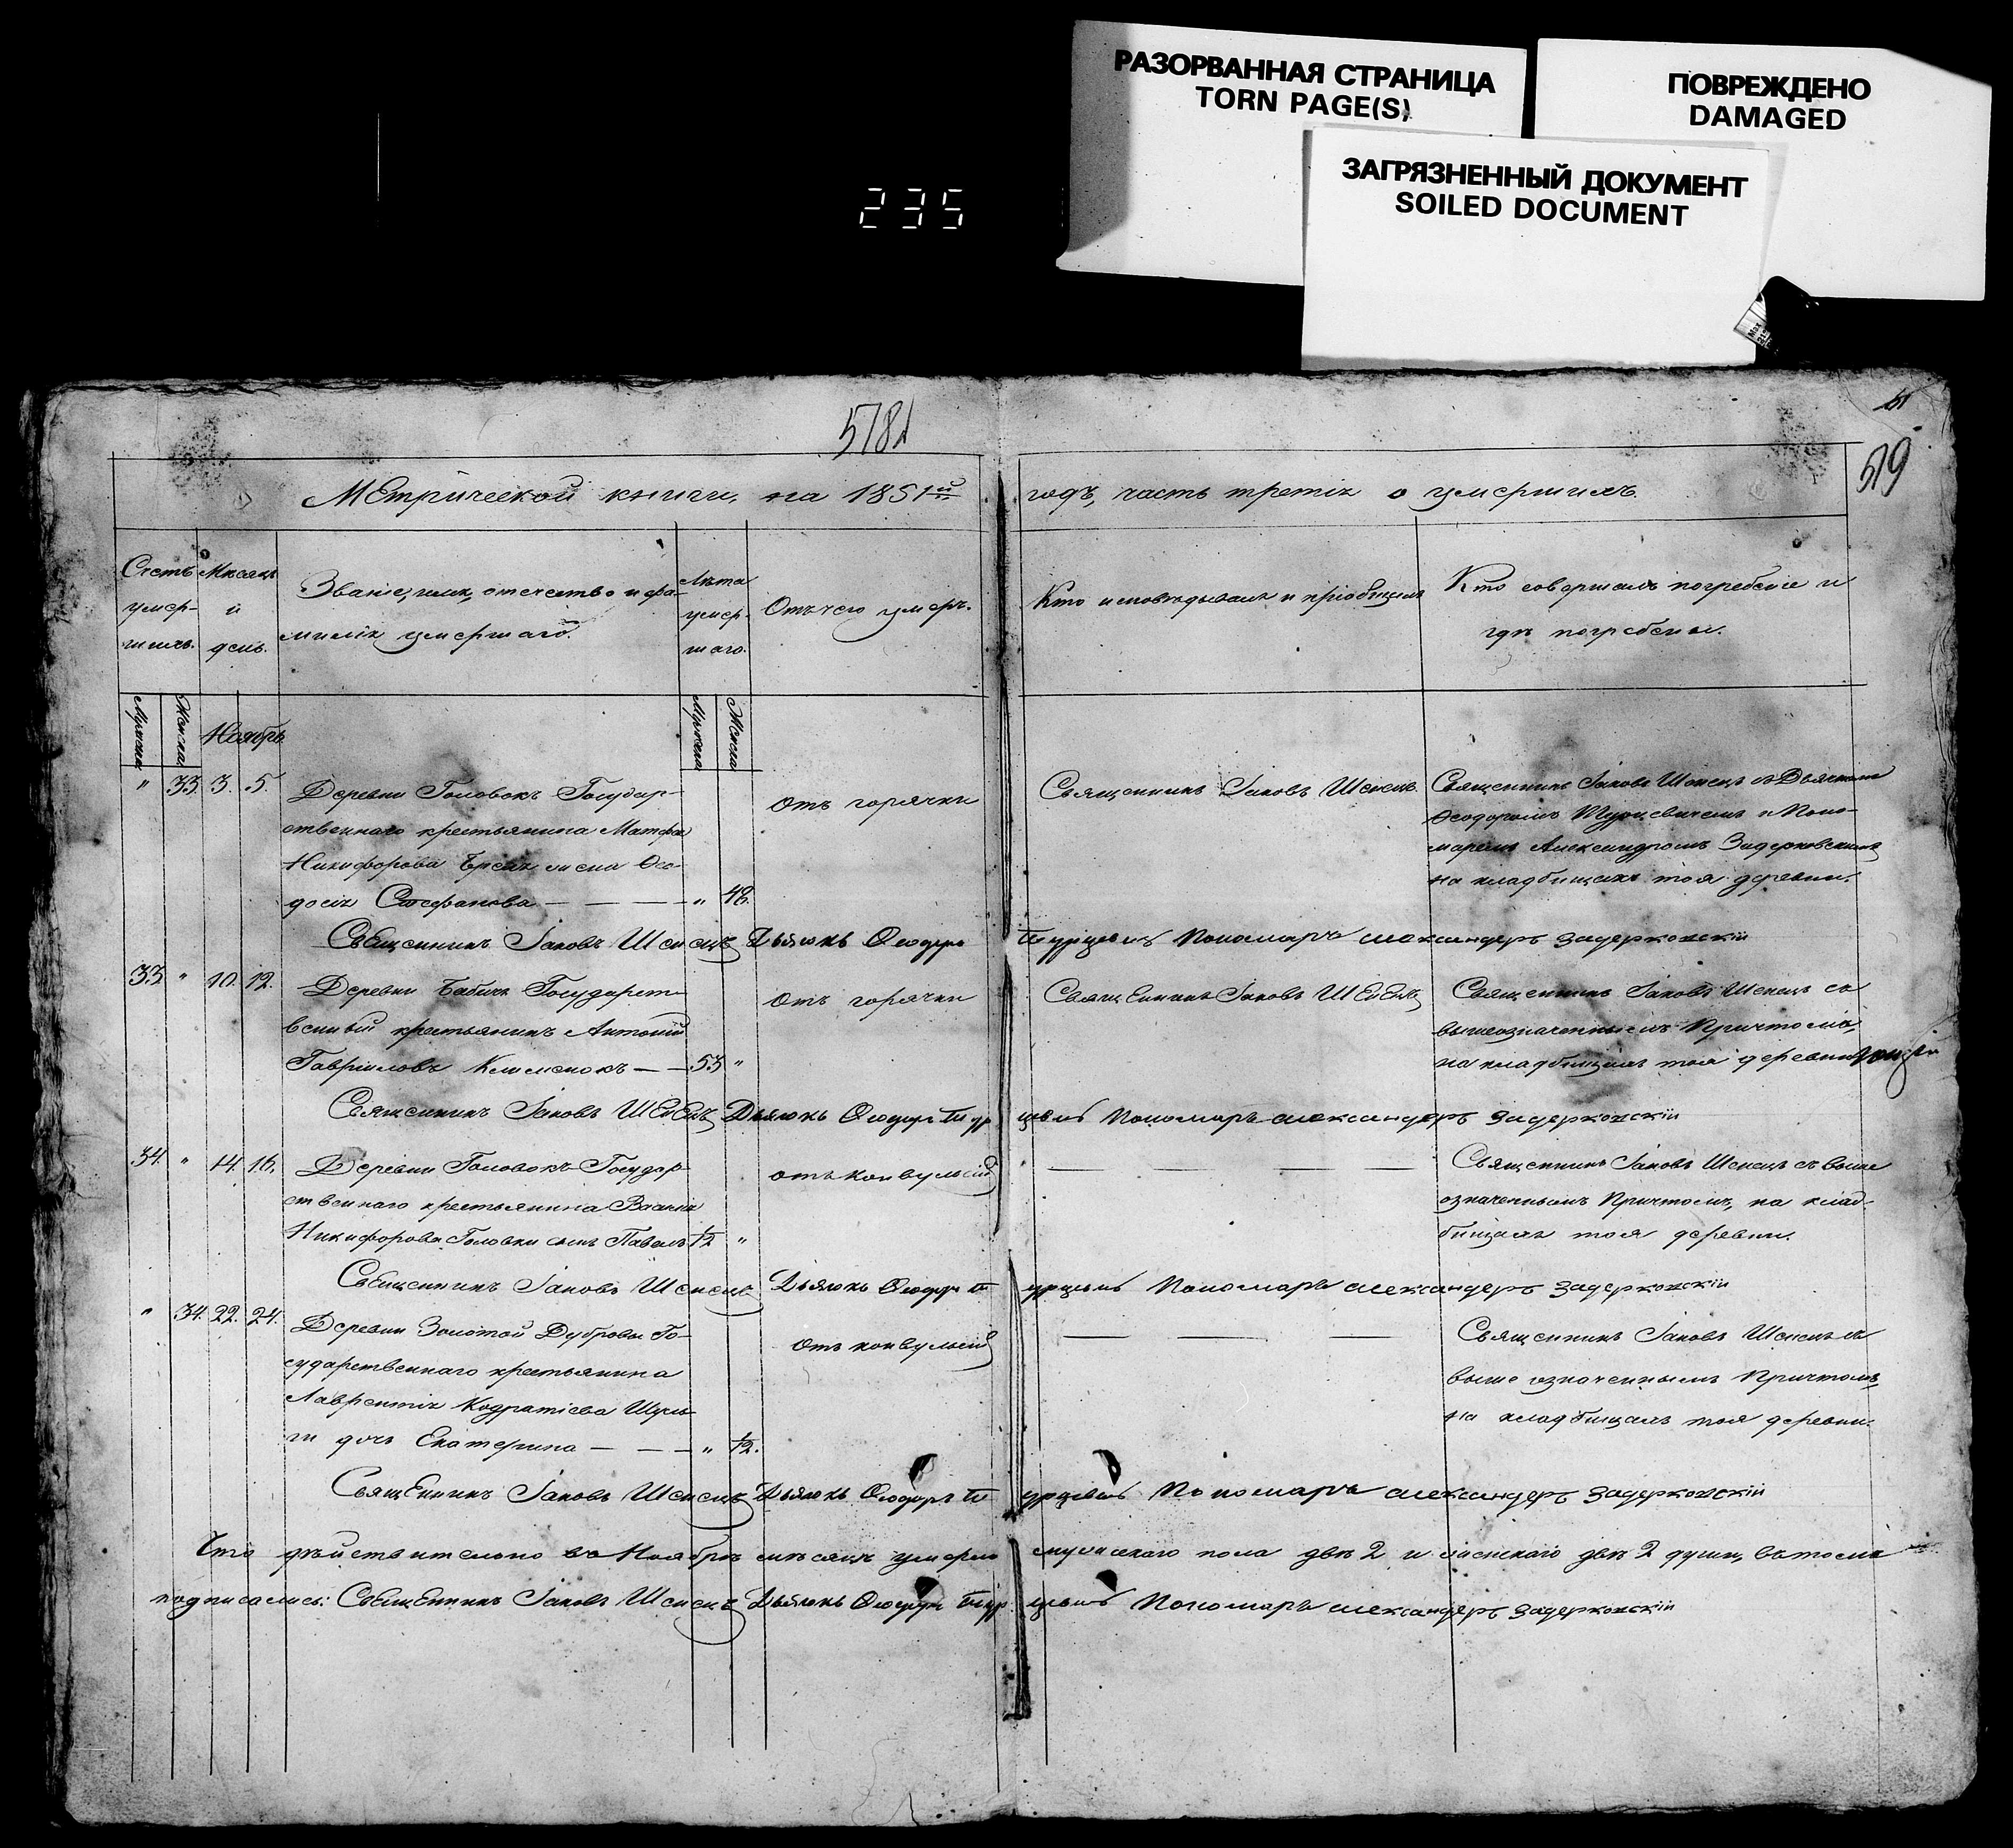 РАЗОРВАННАЯ СТРАНИЦА
TORN PAGE(S)
ПОВРЕЖДЕНО
DAMAGED
ЗАГРЯЗНЕННЫЙ ДОКУМЕНТ
SOILED DOCUMENT
235
518
519
Метрической книги, на 1851й годъ, часть третія о умершихъ.
Счетъ умер-шихъ.
Мѣсяцъ и день.
Званіе, имя, отечество и фа-
милія умершаго.
Лѣта умер-шаго.
Отъ чего умеръ.
Кто исповѣдывалъ и пріобщалъ
Кто совершалъ погребеніе и
гдѣ погребены.
Мужска
Женска
Ноябрь
Мужска
Женска
" 33. 3. 5.
Деревни Головокъ Государ-
ственнаго крестьянина Матфея
Никифорова жена Ѳео-
досія Стефанова — — — " 48.
отъ горячки
Священникъ Іаковъ Шенецъ.
Священникъ Іаковъ Шенецъ съ Дьячкомъ
Ѳеодоромъ и Поно-
маремъ Александромъ Задерковскимъ
на кладбищахъ тоя деревни.
Священникъ Іаковъ Шенецъ Дьячокъ Ѳеодоръ Пономарь александеръ задерковскій
33. " 10. 12.
Деревни Бабичъ Государст-
венный крестьянинъ Антоній
Гавріиловъ Клименокъ — — 53 "
отъ горячки
Священникъ Іаковъ Шенецъ
Священникъ Іаковъ Шенецъ со
вышеозначеннымъ Причтомъ,
на кладбищахъ тоя деревни
Священникъ Іаковъ Шенецъ Дьячокъ Ѳеодоръ Пономарь александеръ задерковскій
34. " 14. 16.
Деревни Головокъ Государ-
ственнаго крестьянина Василія
Никифорова Головки сынъ Павелъ 1/2 "
отъ конвульсій
— — —
Священникъ Іаковъ Шенецъ съ выше
означеннымъ Причтомъ, на клад-
бищахъ тоя деревни.
Священникъ Іаковъ Шенецъ Дьячокъ Ѳеодоръ Пономарь александеръ задерковскій
" 34. 22. 24.
Деревни Золотой Дубровы Го-
сударственнаго крестьянина
Лаврентія Кодратіева Шуль-
ги дочь Екатерина — — — " 1/2.
отъ конвульсій
— — —
Священникъ Іаковъ Шенецъ съ
выше означеннымъ Причтомъ,
на кладбищахъ тоя деревни.
Священникъ Іаковъ Шенецъ Дьячокъ Ѳеодоръ Пономарь александеръ задерковскій
Что дѣйствительно въ Ноябрѣ мѣсяцѣ умерло мужескаго пола двѣ 2 и женскаго двѣ 2 души, въ томъ
подписались: Священникъ Іаковъ Шенецъ Дьячокъ Ѳеодоръ Пономарь александеръ задерковскій